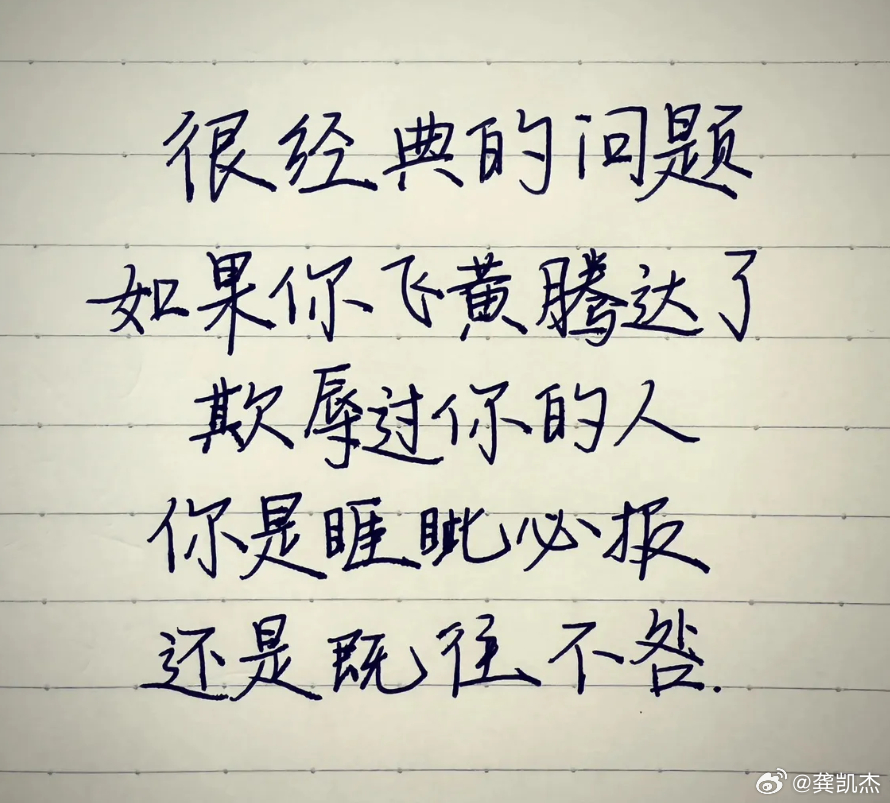 很经典的问题
如果你飞黄腾达了
欺辱过你的人
你是睚眦必报
还是既往不咎.
@龚凯杰